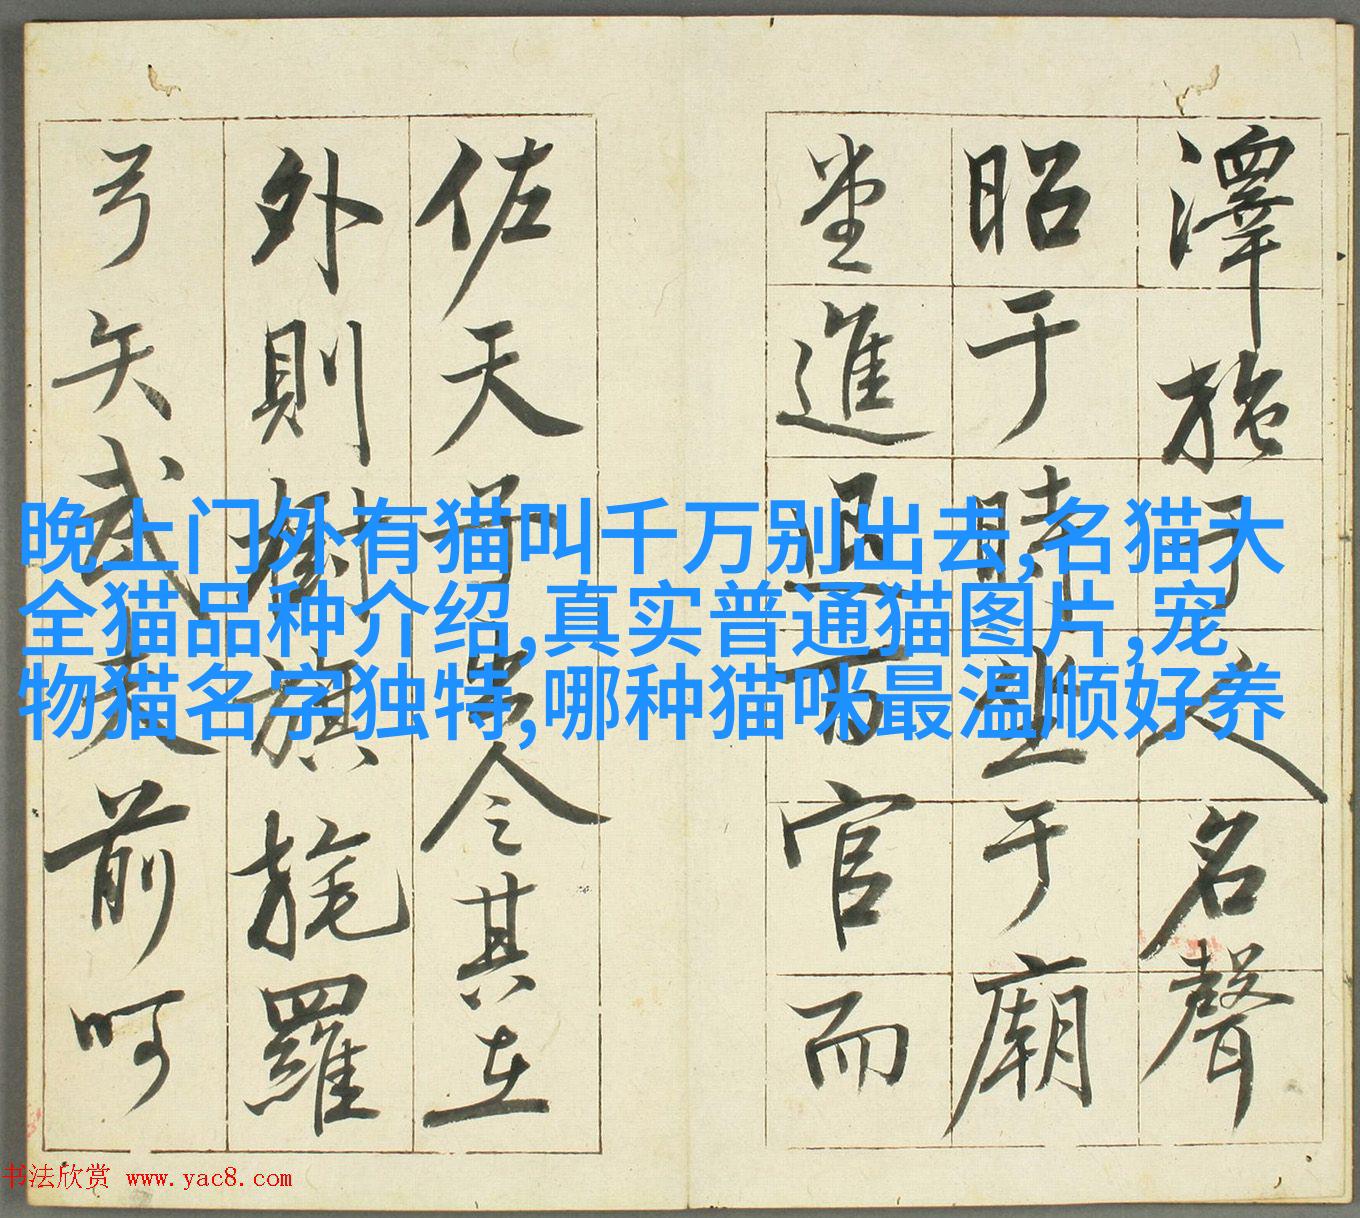 澤施于人名聲
昭于時坐于廟
堂進退百官而
佐天子出令其在
外則樹旗旄羅
弓矢武夫前呵
晚上门外有猫叫千万别出去,名猫大
全猫品种介绍,真实普通猫图片,宠
物猫名字独特,哪种猫咪最温顺好养
书法欣赏 www.yac8.com